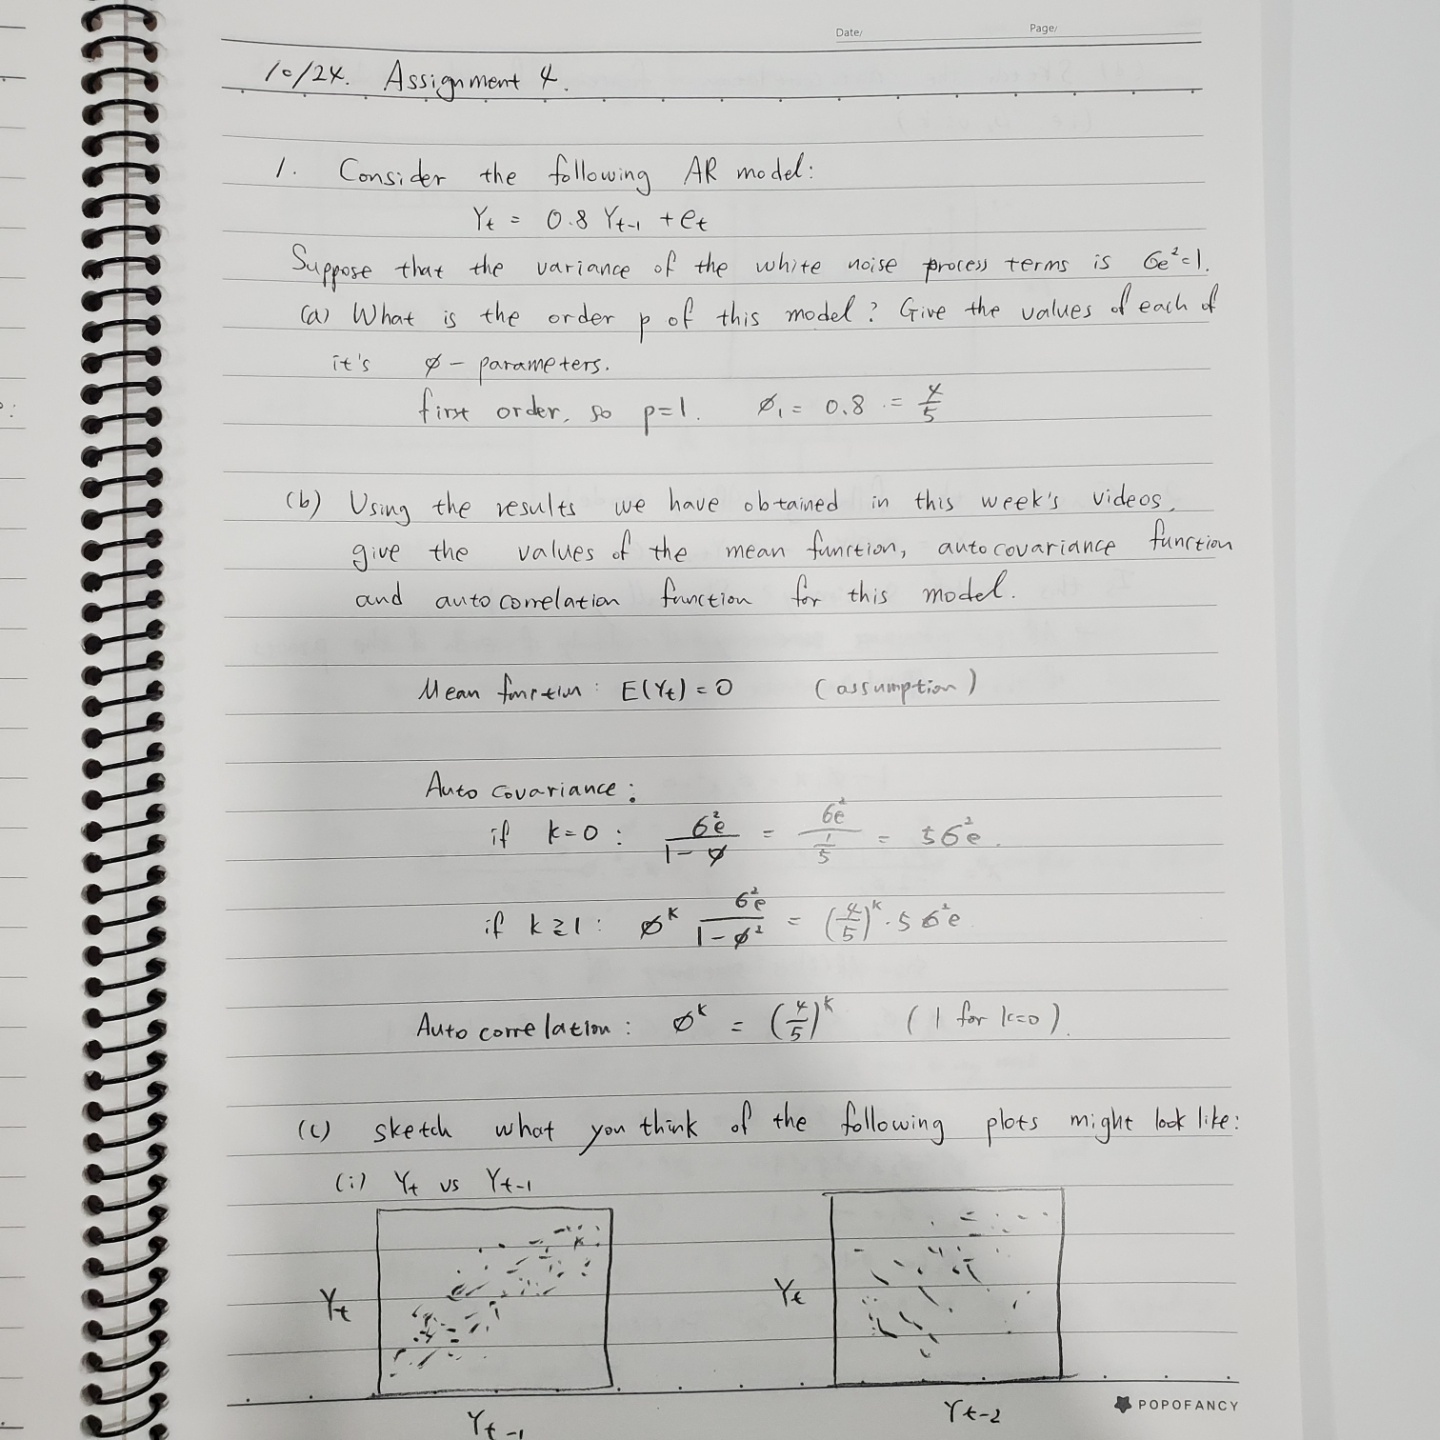 Date/ Page/
10/24. Assignment 4.
1. Consider the following AR model:
Yt = 0.8 Yt-1 + et
Suppose that the variance of the white noise process terms is σe²=1.
(a) What is the order p of this model? Give the values of each of
it's φ - parameters.
first order, so p=1. φ₁ = 0.8 = 4/5
(b) Using the results we have obtained in this week's videos,
give the values of the mean function, autocovariance function
and autocorrelation function for this model.
Mean function: E(Yt) = 0 (assumption)
Auto covariance:
if k=0 : σ²e / 1-φ = σ²e / 1/5 = 5σ²e.
if k≥1 : φ^k σ²e / 1-φ² = (4/5)^k · 5 σ²e
Auto correlation: φ^k = (4/5)^k (1 for k=0).
(c) sketch what you think of the following plots might look like:
(i) Yt vs Yt-1
Yt Yt
Yt-1 Yt-2
POPOFANCY